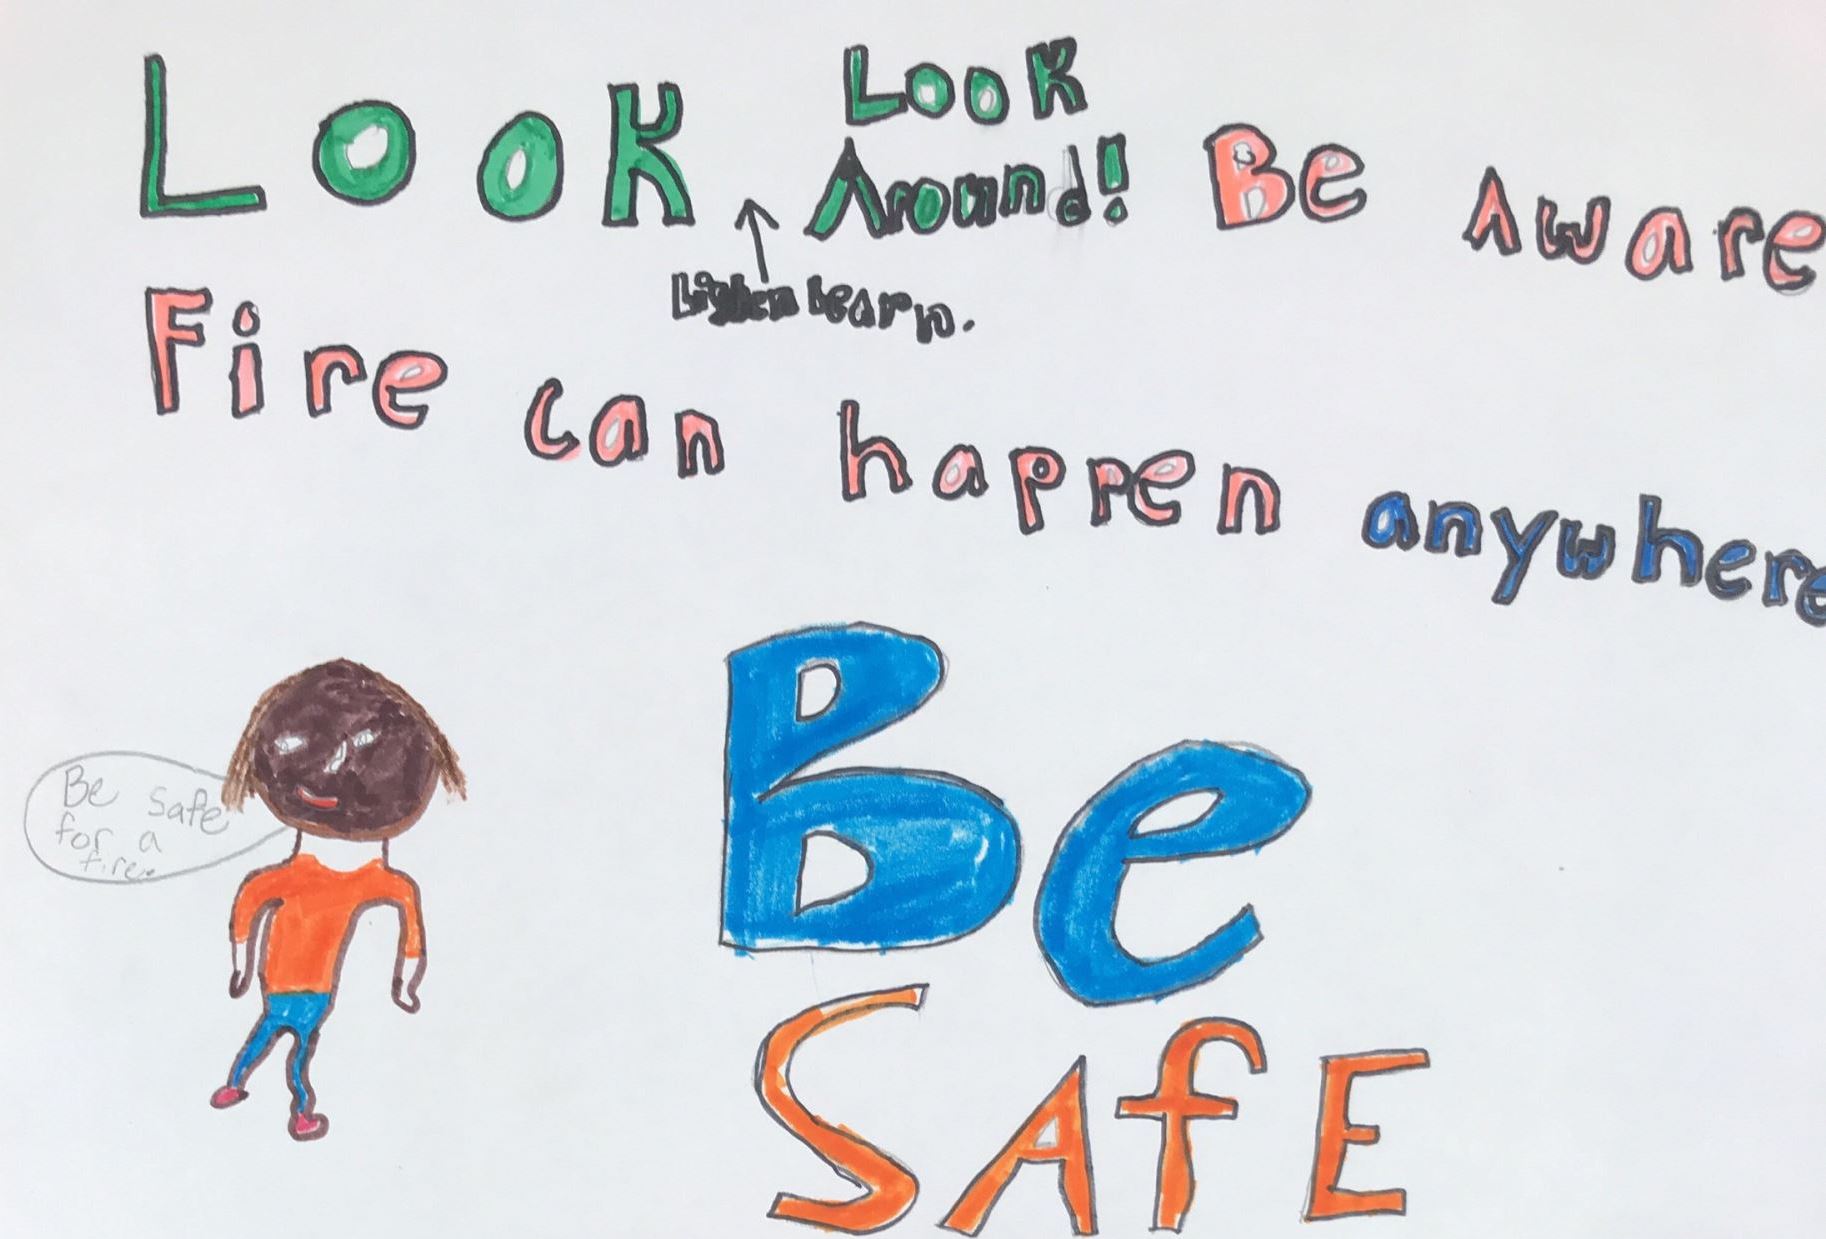 LOOK
Look
Around!
Be Aware
Learn.
Fire can happen anywhere
Be safe
for a
fire.
Be
SAfE